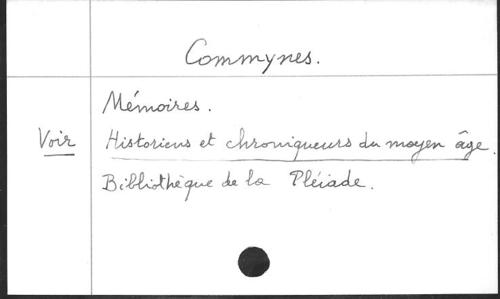 Commynes.
Mémoires.
Voir Historiens et chroniqueurs du moyen âge.
Bibliothèque de la Pléiade.